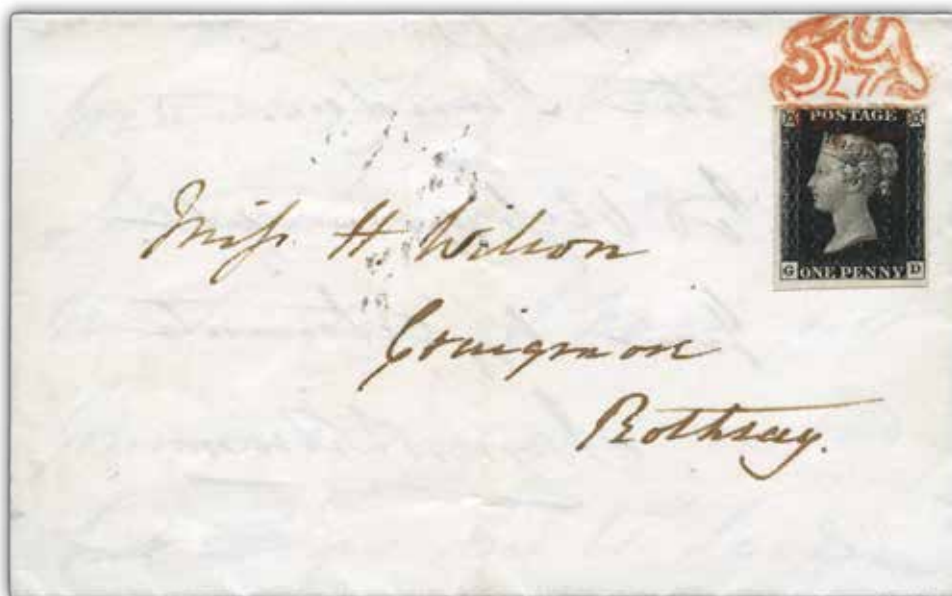 POSTAGE
G ONE PENNY D
Miss H Wilson
Craigmore
Rothsay.